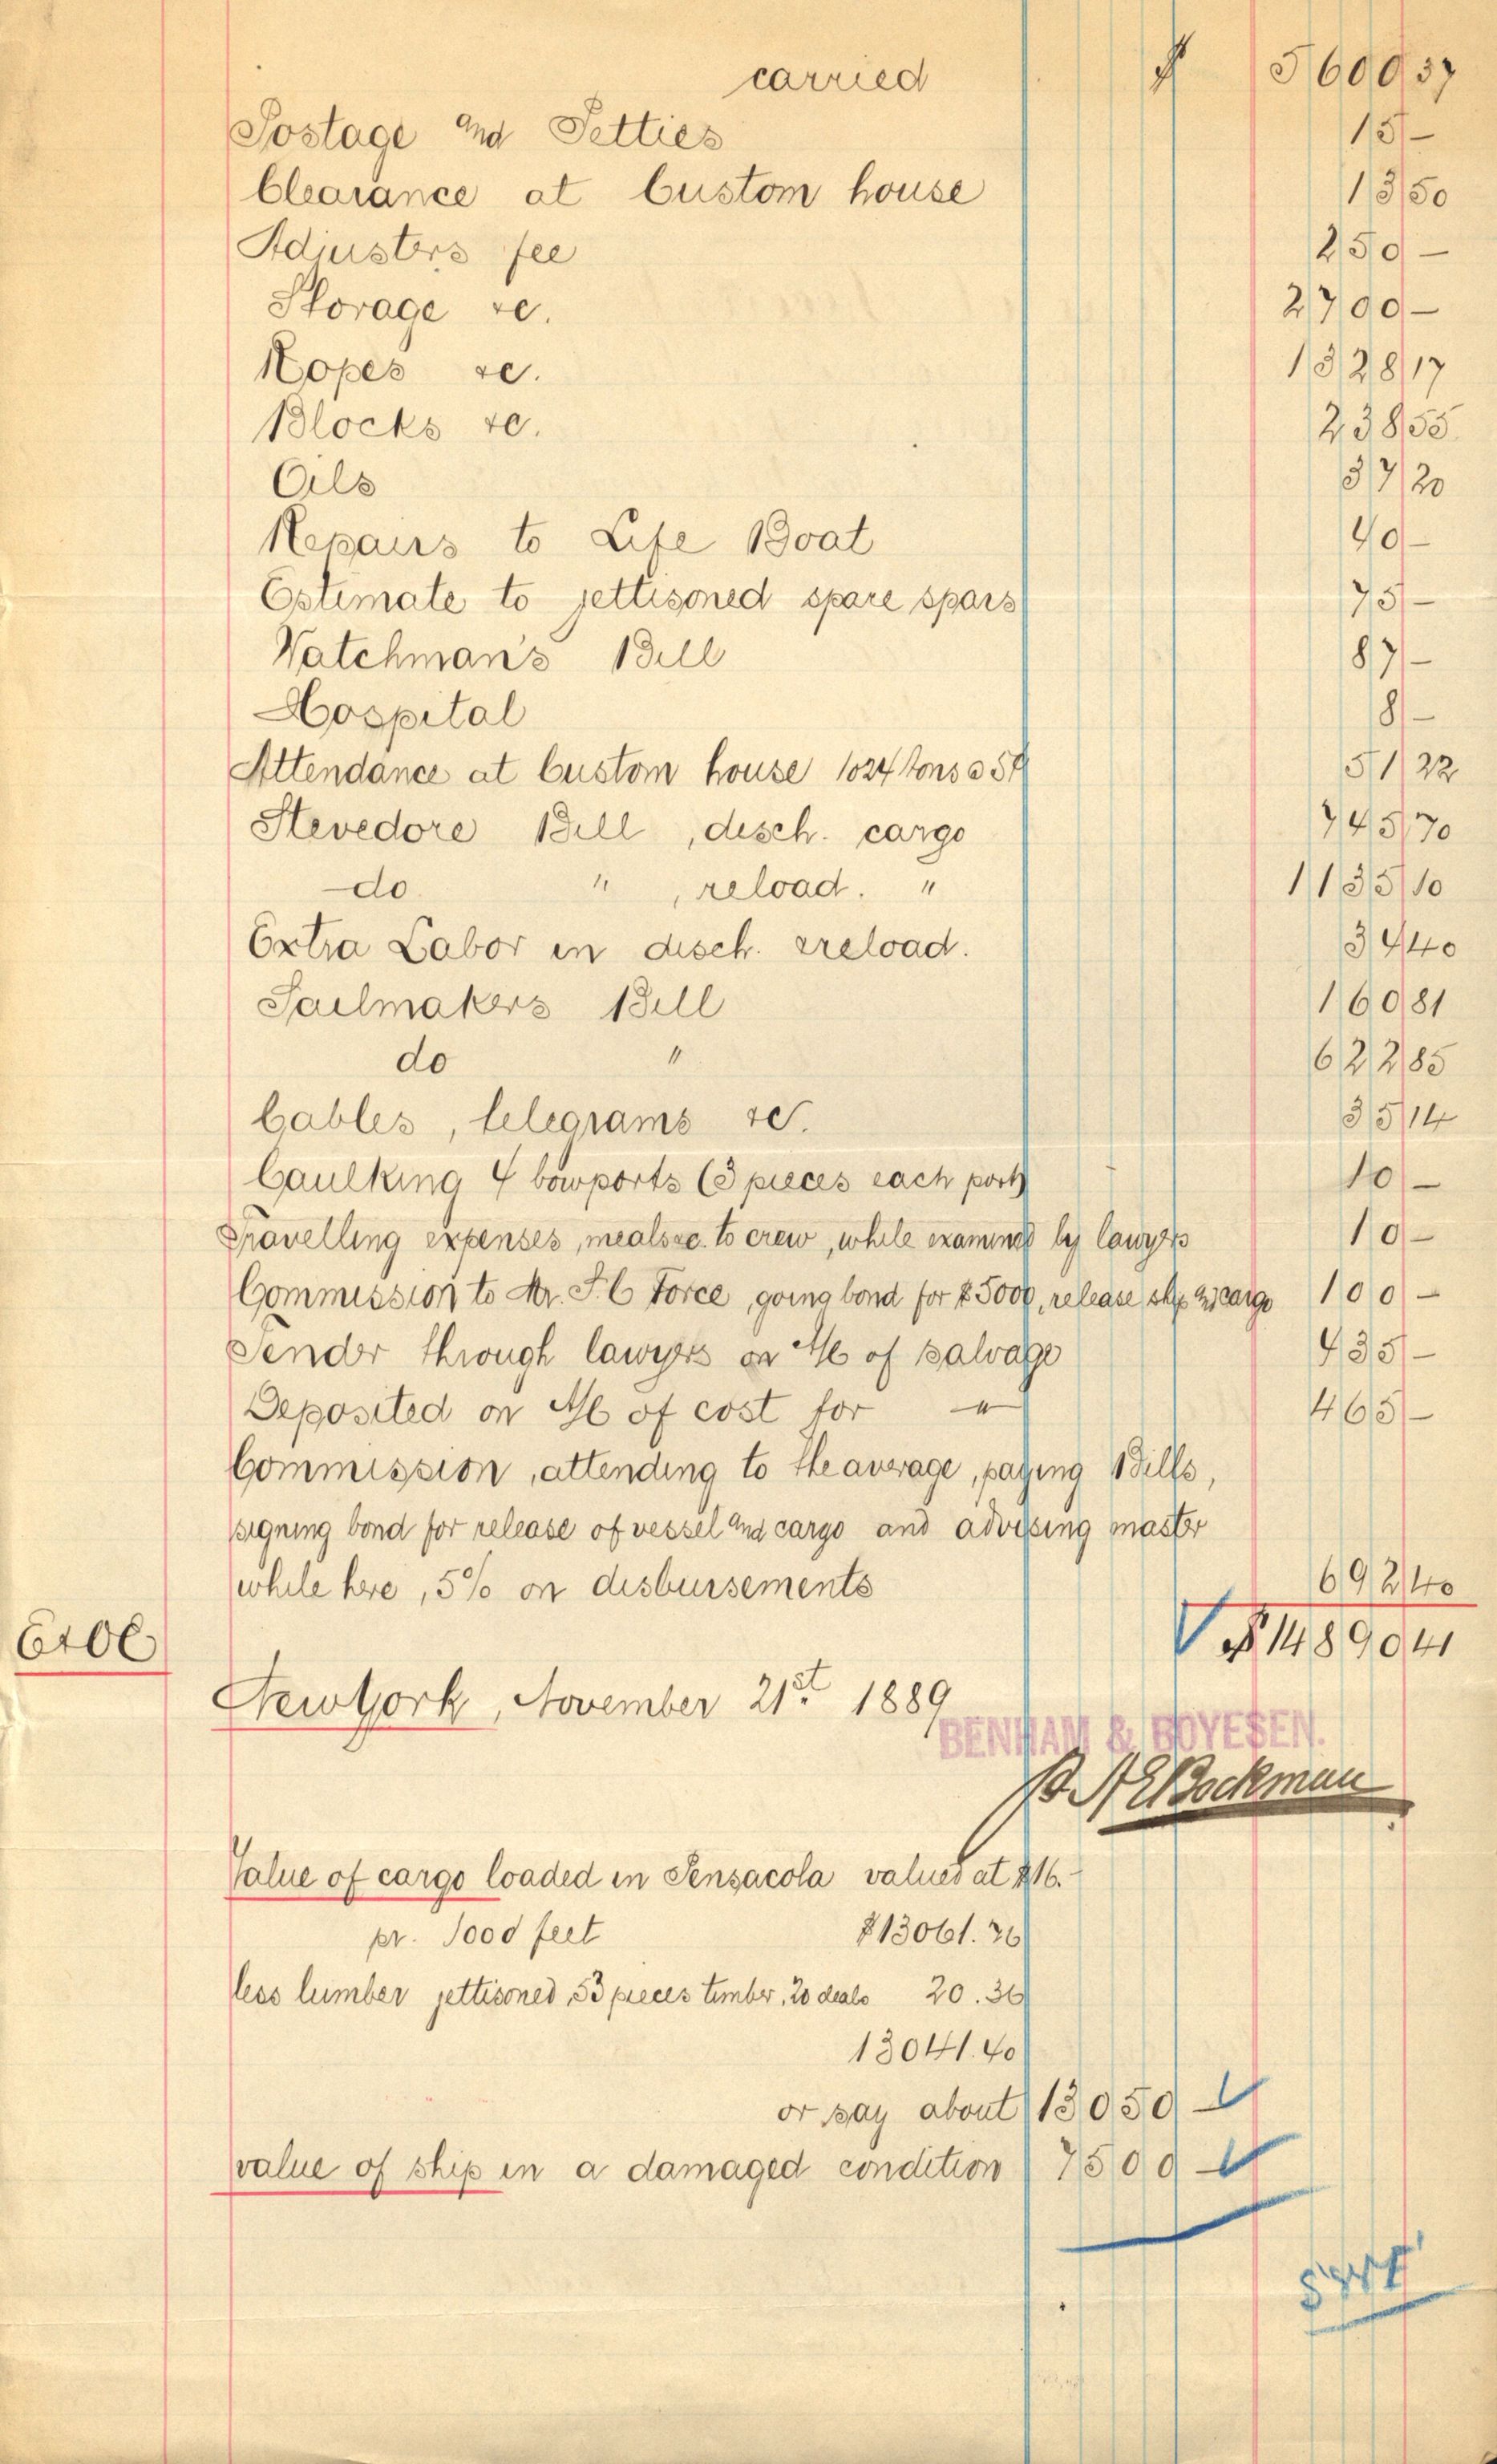 carried $ 5600 37
Postage and Petties 15 –
Clearance at Custom house 13 50
Adjusters fee 250 –
Storage &c. 2700 –
Ropes &c. 1328 17
Blocks &c. 238 55
Oils 37 20
Repairs to Life Boat 40 –
Estimate to jettisoned spare spars 75 –
Watchman's Bill 87 –
Hospital 8 –
Attendance at Custom house 1024 tons a 5¢ 51 22
Stevedore Bill, disch. cargo 745 70
do " , reload. " 1135 10
Extra Labor in disch. & reload. 34 40
Sailmakers Bill 160 81
do " 622 85
Cables, telegrams &c. 35 14
Caulking 4 bowports (3 pieces each port) 10 –
Travelling expenses, meals &c. to crew, while examined by lawyers 10 –
Commission to Mr. F. C Force, going bond for $5000, release ship and cargo 100 –
Tender through lawyers on A/c of salvage 435 –
Deposited on A/c of cost for " 465 –
Commission, attending to the average, paying Bills,
signing bond for release of vessel and cargo and advising master
while here, 5% on disbursements 692 40
E&OE $ 14890 41
New York, November 21st 1889
BENHAM & BOYESEN.
Bockman
Value of cargo loaded in Pensacola valued at $16.–
pr. 1000 feet $13061.76
less lumber jettisoned 53 pieces timber, 20 deals 20.36
13041.40
or say about 13050 –
value of ship in a damaged condition 7500 –